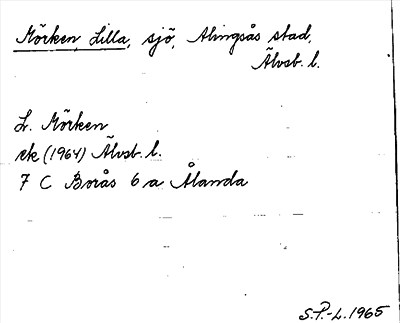 Mörken, Lilla, sjö, Alingsås stad,
Älvsb. l.
L. Mörken
ek (1964) Älvsb. l.
7 C Borås 6 a Ålanda
S.P.-L. 1965